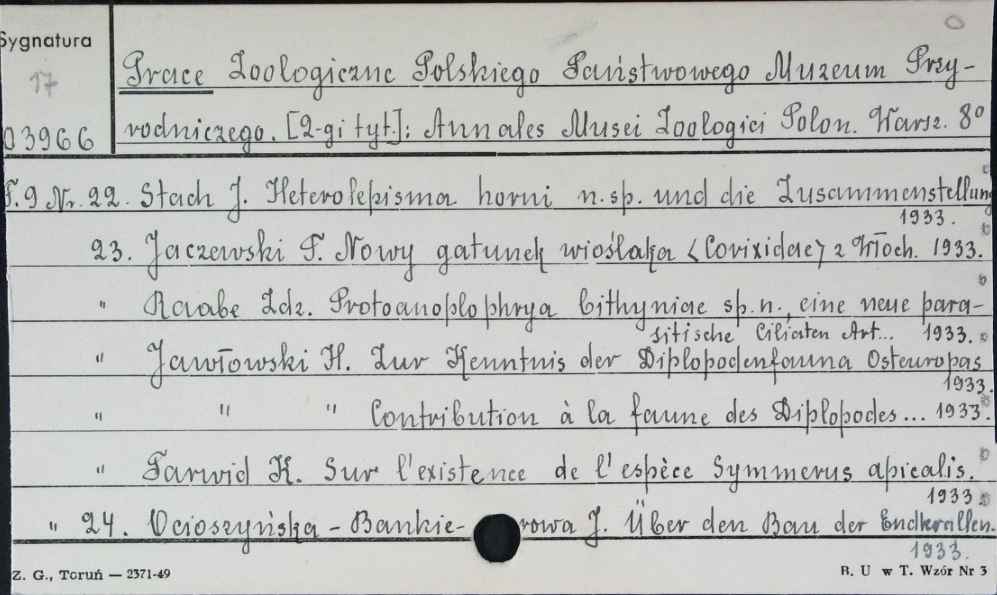 Sygnatura
17
03966
Prace Zoologiczne Polskiego Państwowego Muzeum Przy-
rodniczego. [2-gi tyt.]: Annales Musei Zoologici Polon. Warsz. 8°
T. 9 Nr. 22. Stach J. Heterolepisma horni n. sp. und die Zusammenstellung
1933.
23. Jaczewski T. Nowy gatunek wioślaka <Corixidae> z Włoch. 1933.
" Raabe Zdz. Protoanoplophrya bithyniae sp. n., eine neue para-
sitische Ciliaten Art... 1933.
" Jawłowski H. Zur Kenntnis der Diplopodenfauna Osteuropas
1933.
" " " Contribution à la faune des Diplopodes... 1933.
" Tarwid K. Sur l'existence de l'espèce Symmerus apicalis.
1933
" 24. Ocioszyńska-Bankie- rowa J. Über den Bau der Endkrallen.
1933.
Z. G., Toruń — 2371-49
B. U w T. Wzór Nr 3